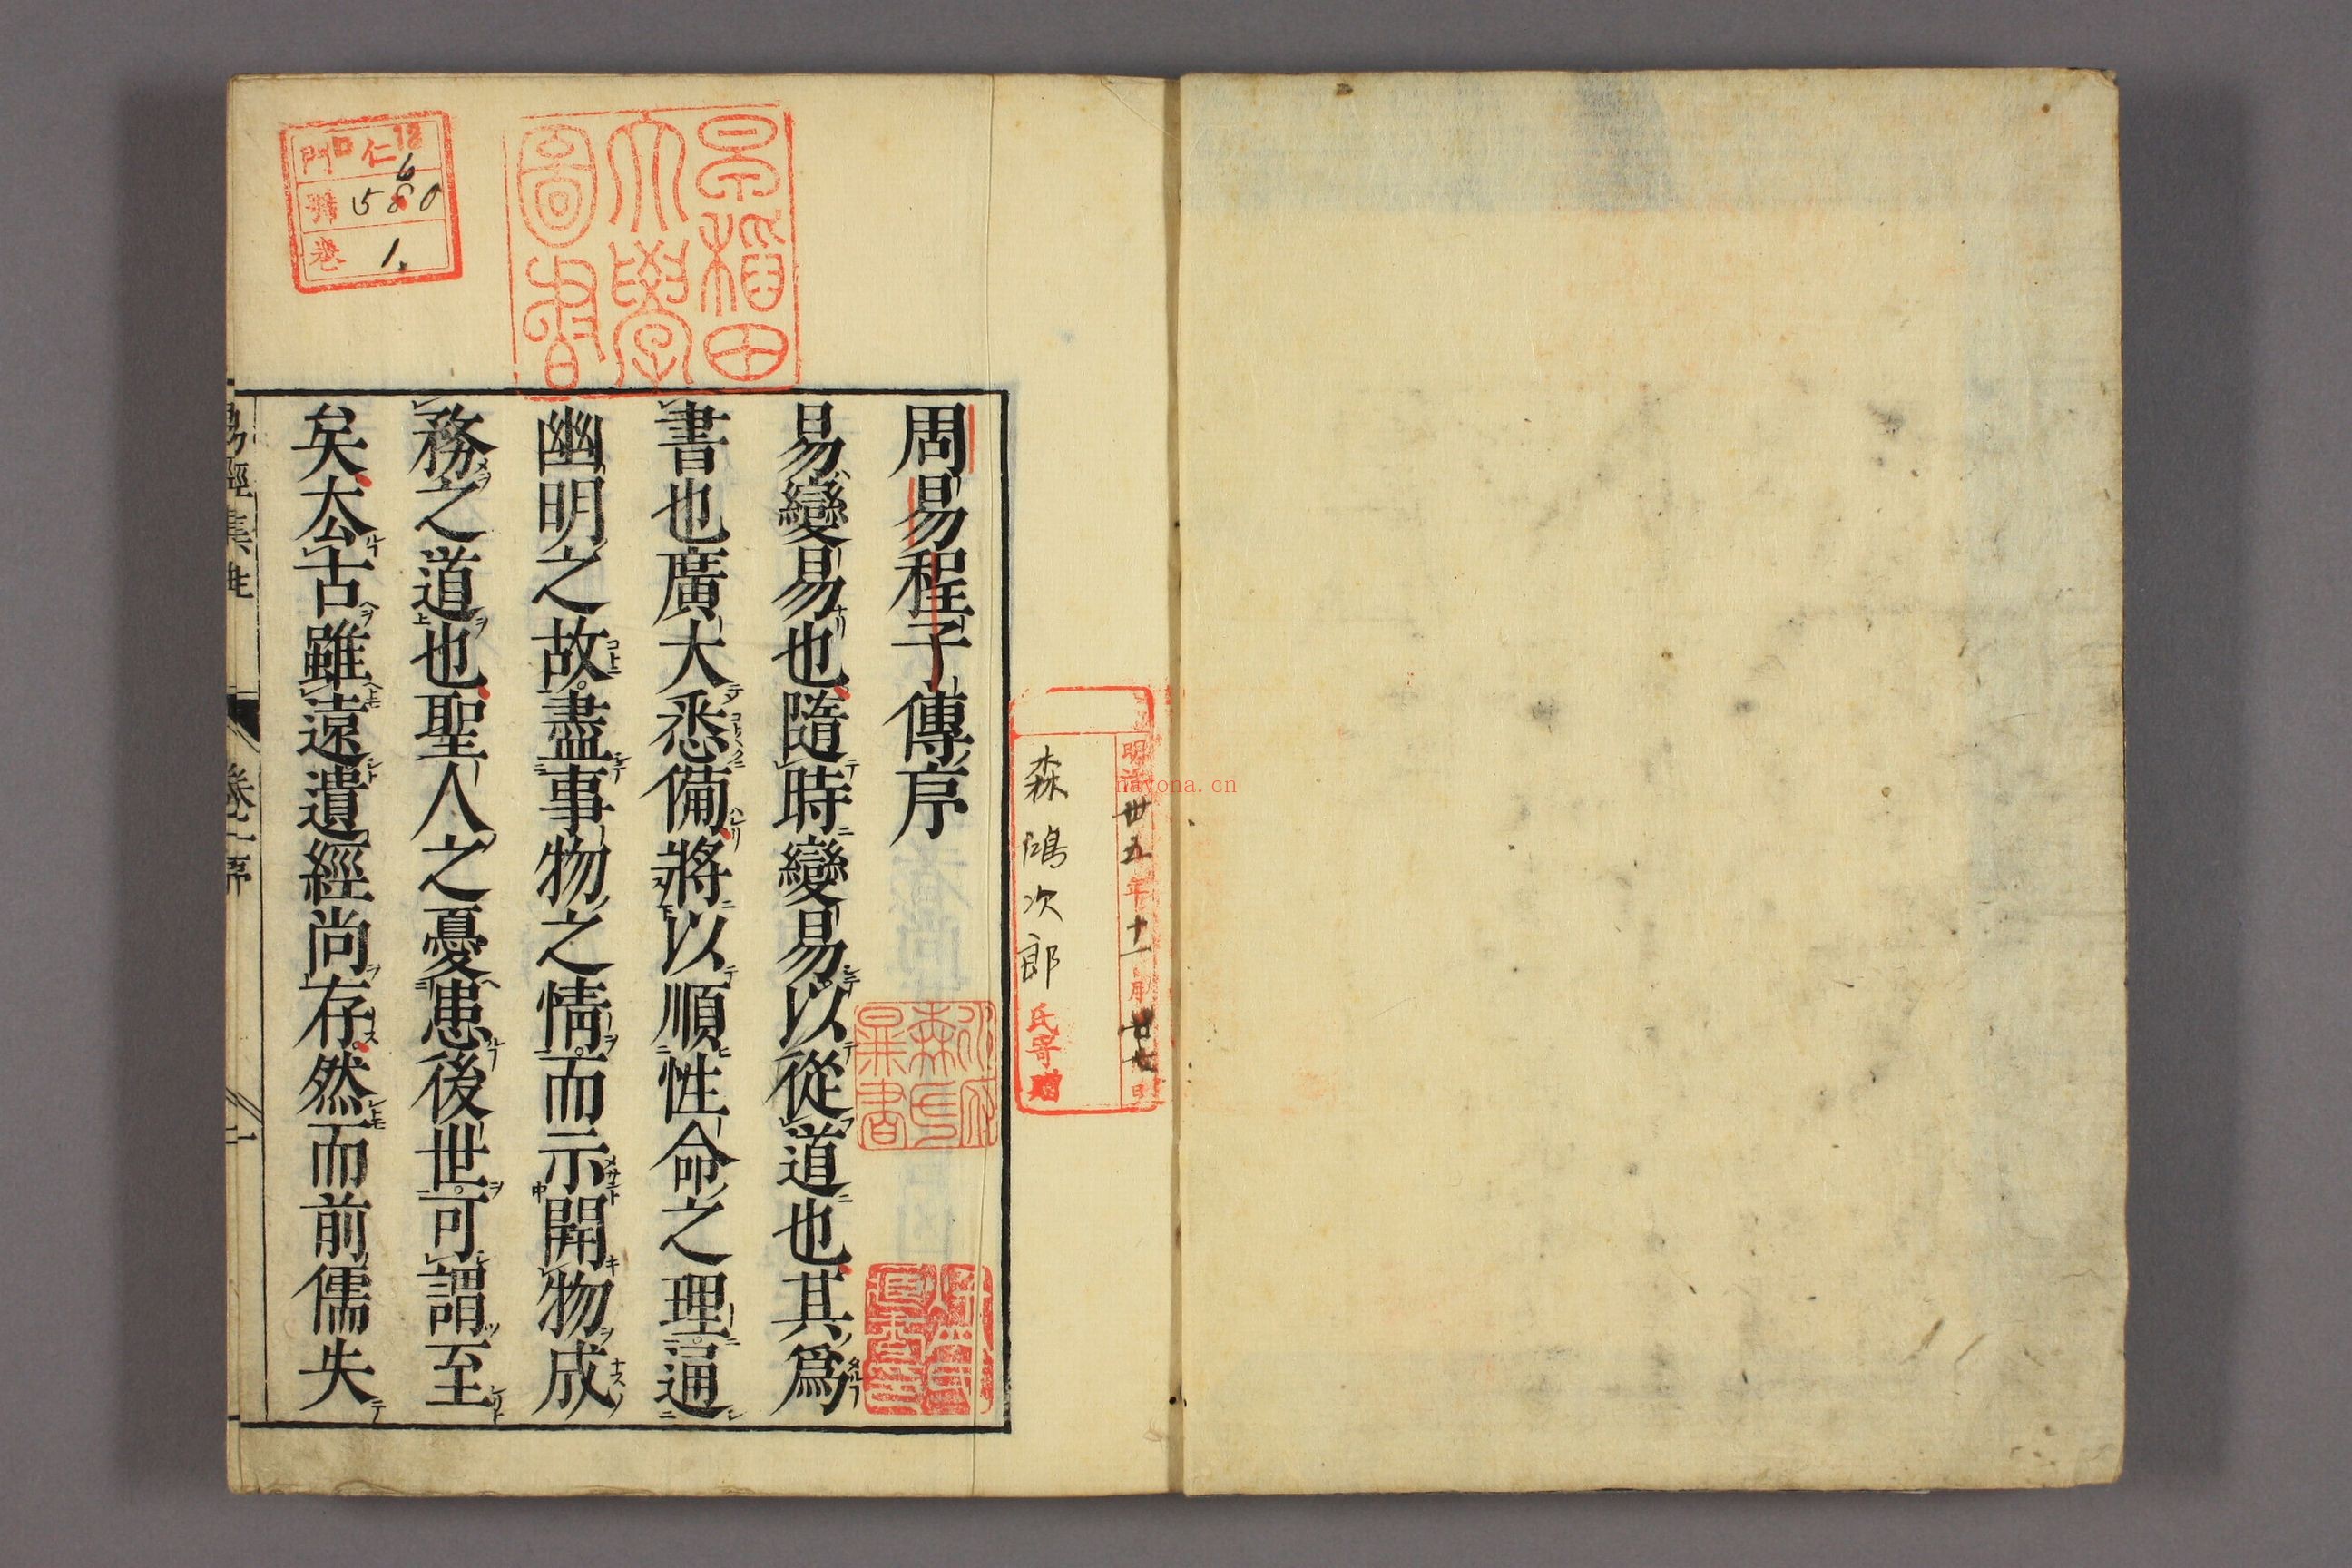 周易程子傳序
易變易也隨時變易以從道也其爲
書也廣大悉備將以順性命之理通
幽明之故盡事物之情而示開物成
務之道也聖人之憂患後世可謂至
矣厺古雖遠遺經尚存然而前儒失
早稻田
大學
圖書
門 口 仁 12
號 6 580
卷 1.
明治卅五年十一月廿七日
森鴻次郎氏寄贈
nayona.cn